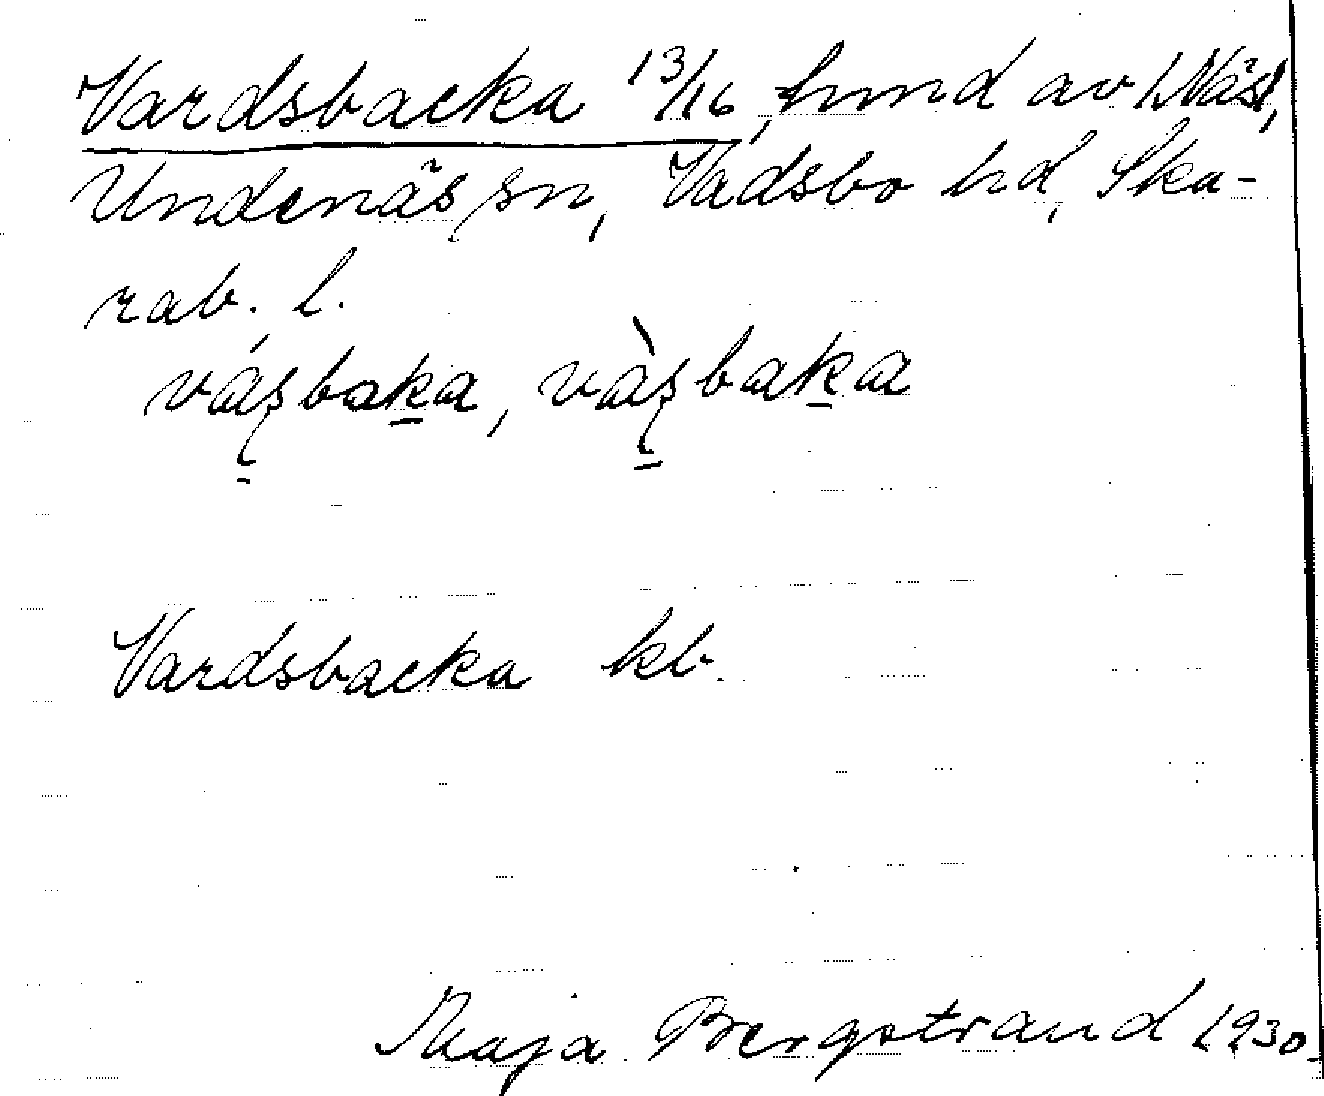 Vardsbacka 13/16, hmd av 1 Näs,
Undenäs sn, Vadsbo hd, Ska-
rab. l.
vá̱ʂbaḵa, và̱ʂbaḵa
Vardsbacka kb.
Maja Bergstrand 1930.